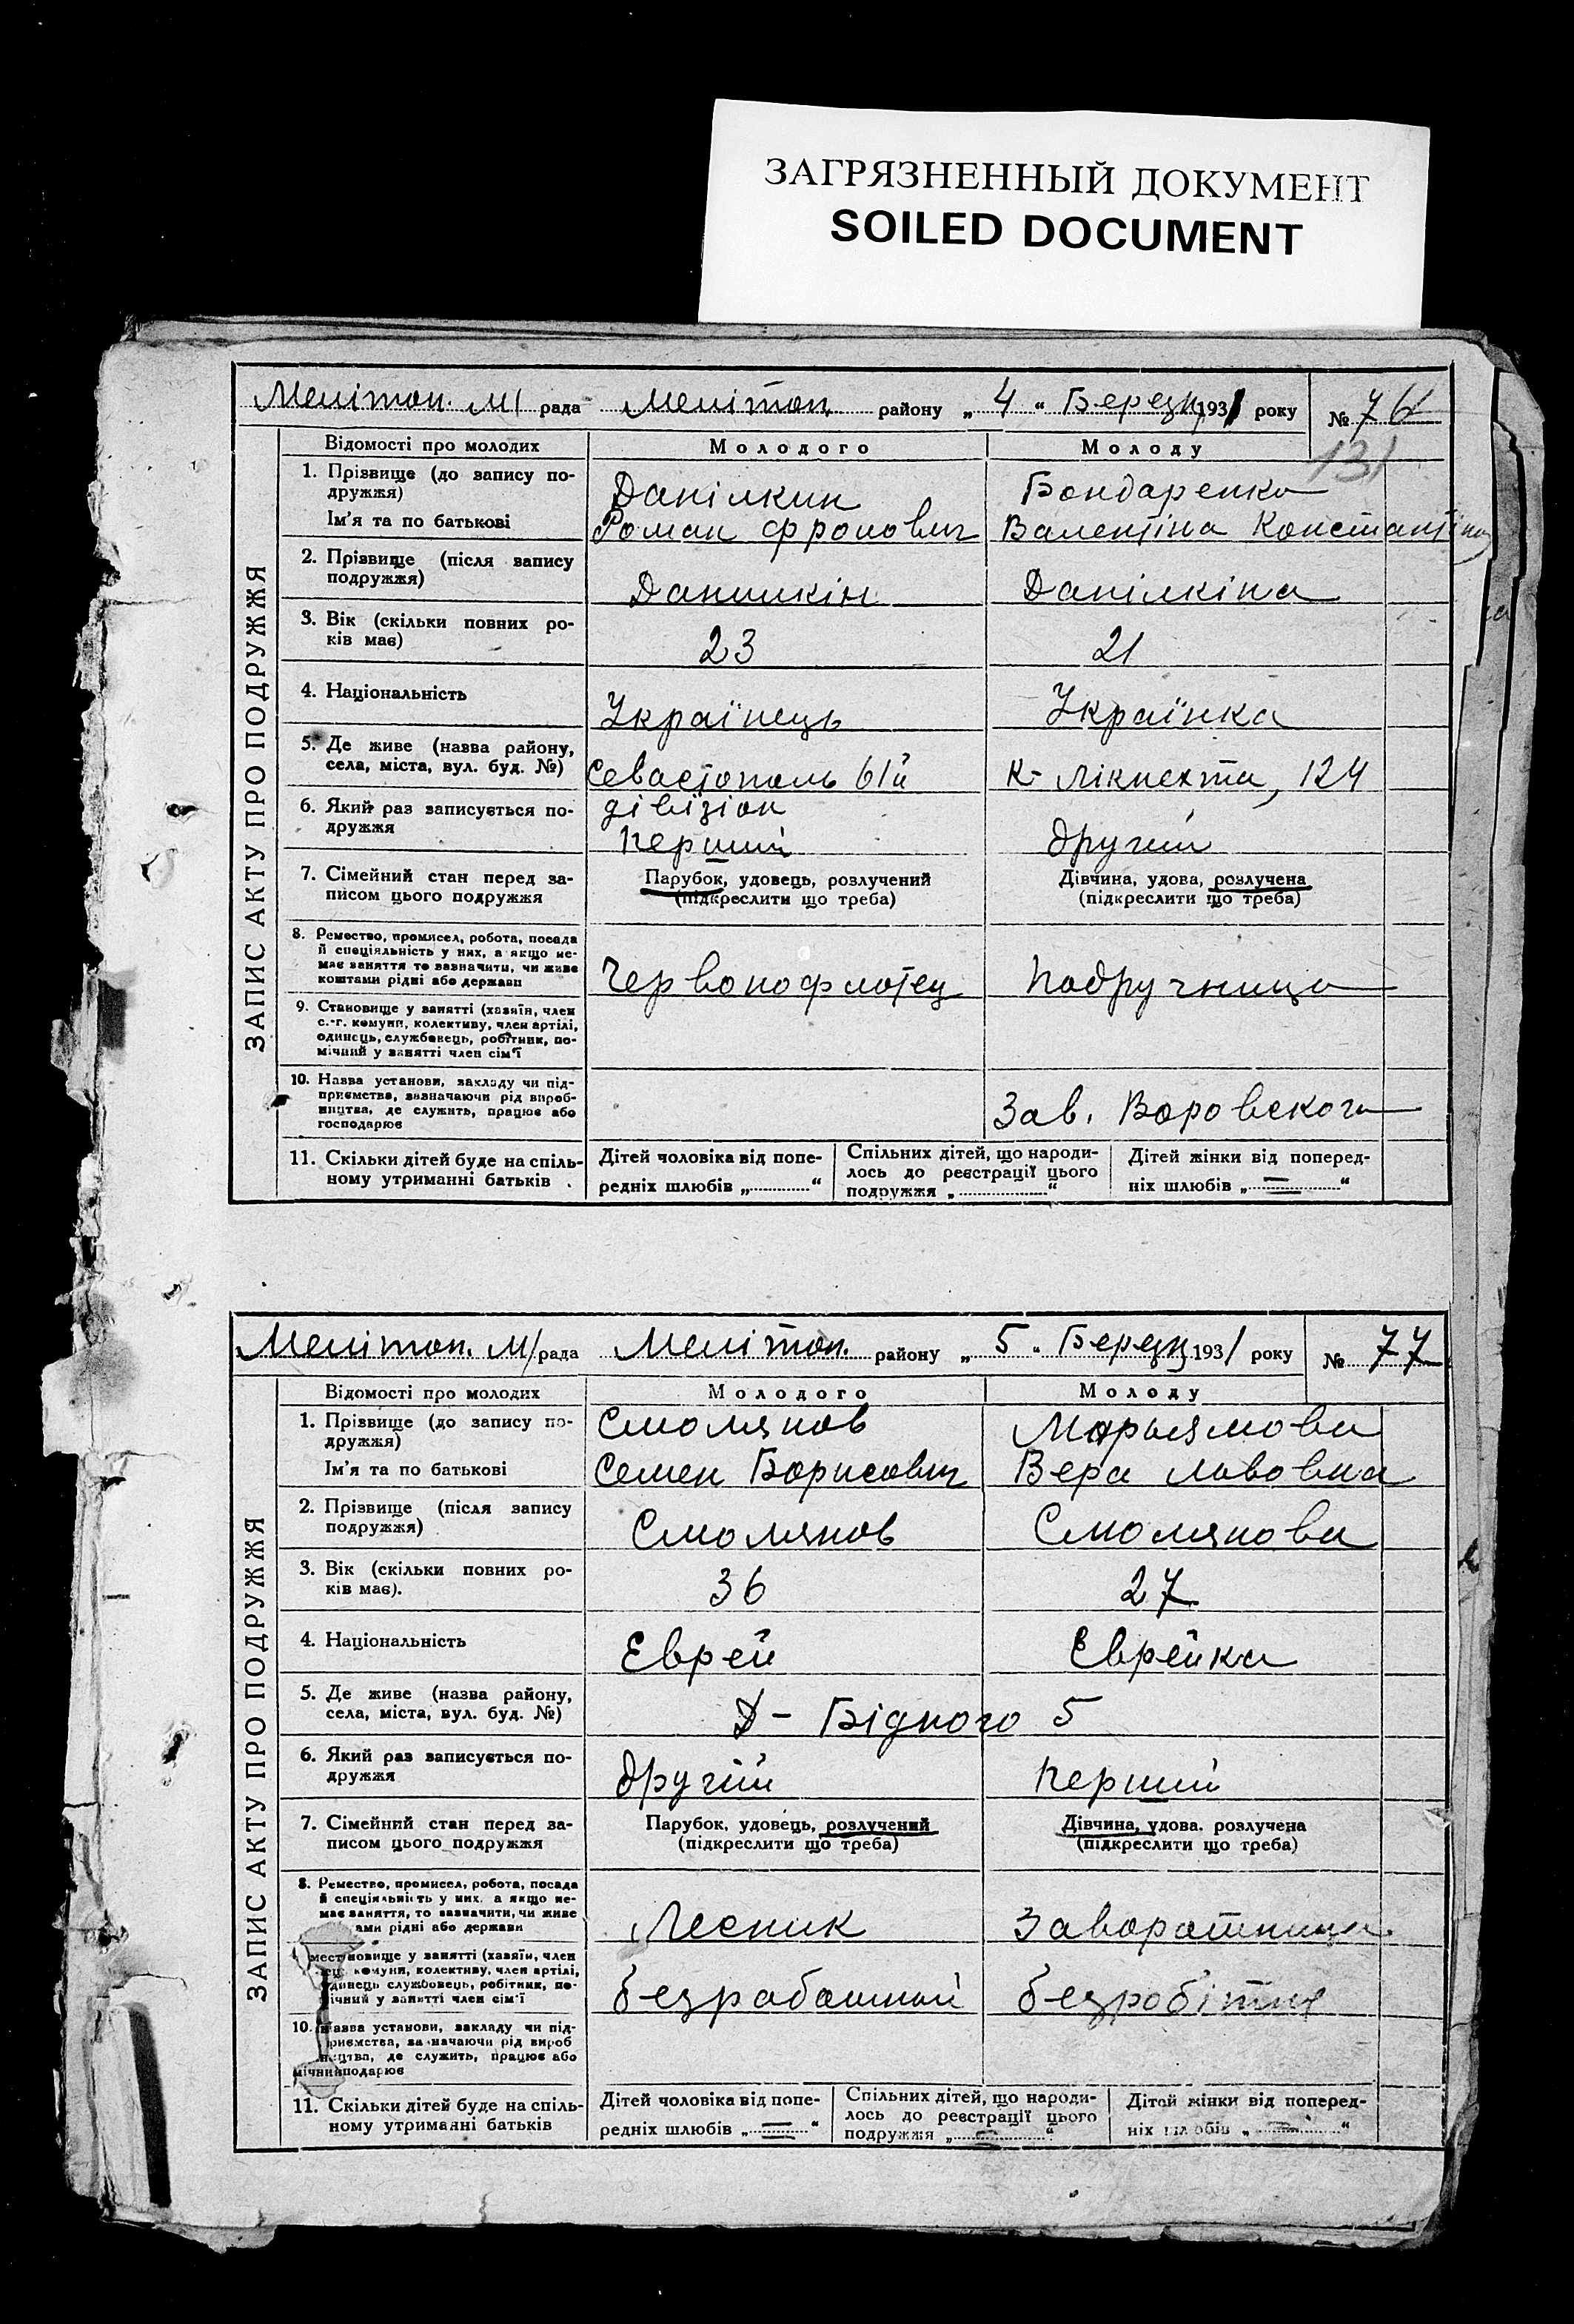 ЗАГРЯЗНЕННЫЙ ДОКУМЕНТ
SOILED DOCUMENT
Мелітоп. М/ рада Мелітоп. району „ 4 “ Березня 1931 року № 76
131
ЗАПИС АКТУ ПРО ПОДРУЖЖЯ
Відомості про молодих Молодого Молоду
1. Прізвище (до запису по-
дружжя) Данілкин Бондаренко
Ім'я та по батькові Роман Фролович Валентіна Константінов
2. Прізвище (після запису
подружжя) Данилкін Данілкіна
3. Вік (скільки повних ро-
ків має) 23 21
4. Національність Українець Українка
5. Де живе (назва району,
села, міста, вул. буд. №) Севастополь 61й К- Лікнехта, 124
6. Який раз записується по- дівізіон
дружжя перший другий
7. Сімейний стан перед за- Парубок, удовець, розлучений Дівчина, удова, розлучена
писом цього подружжя (підкреслити що треба) (підкреслити що треба)
8. Ремество, промисел, робота, посада
й спеціяльність у них, а якщо не-
має заняття то зазначити, чи живе
коштами рідні або держави Червонофлотец Подручница
9. Становище у занятті (хазяїн, член
с.-г. комуни, колективу, член артілі,
одинець, службовець, робітник, по-
мічний у занятті член сім'ї
10. Назва установи, закладу чи під-
приємства, зазначаючи рід вироб-
ництва, де служить, працює або
господарює Зав. Воровского
11. Скільки дітей буде на спіль- Дітей чоловіка від попе- Спільних дітей, що народи- Дітей жінки від поперед-
ному утриманні батьків редніх шлюбів „ “ лось до реєстрації цього ніх шлюбів „ = “
подружжя „ “
Мелітоп. М/ рада Мелітоп. району „ 5 „ Березня 1931 року № 77
ЗАПИС АКТУ ПРО ПОДРУЖЖЯ
Відомості про молодих Молодого Молоду
1. Прізвище (до запису по- Смолянов Марьямова
дружжя)
Ім'я та по батькові Семен Борисович Вера Львовна
2. Прізвище (після запису
подружжя) Смолянов Смолянова
3. Вік (скільки повних ро-
ків має). 36 27
4. Національність Еврей Еврейка
5. Де живе (назва району,
села, міста, вул. буд. №) Д- Бідного 5
6. Який раз записується по-
дружжя другий перший
7. Сімейний стан перед за- Парубок, удовець, розлучений Дівчина, удова, розлучена
писом цього подружжя (підкреслити що треба) (підкреслити що треба)
8. Ремество, промисел, робота, посада
й спеціяльність у них, а якщо не-
має заняття, то зазначити, чи живе
ами рідні або держави Лесник Заворотница
новище у занятті (хазяїн, член
комуни, колективу, член артілі,
динець службовець, робітник, по-
ічний у занятті член сім'ї безработный безробітня
10. Назва установи, закладу чи під-
приємства, зазначаючи рід вироб
ництва, де служить, працює або
подарює
11. Скільки дітей буде на спіль- Дітей чоловіка від попе- Спільних дітей, що народи- Дітей жінки від поперед-
ному утриманні батьків редніх шлюбів „ = “ лось до реєстрації цього ніх шлюбів „ = “
подружжя „ = “